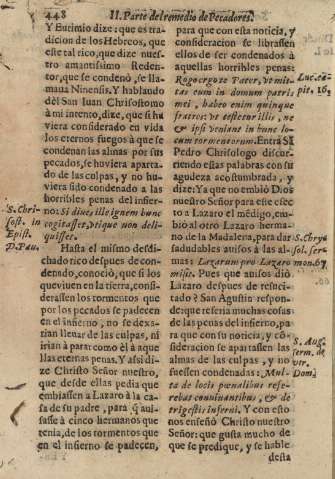 448 II. Parte del remedio de Pecadores.
Y Eutimio dize: que es tra-
dicion de los Hebreos, que
este tal rico, que dize nuest-
tro amantissimo Redent-
tor, que se condenò, se lla-
maua Ninensis. Y hablando
del San Iuan Chrisostomo
à mi intento, dize, que si hu
viera considerado en vida
los eternos fuegos à que se
condenan las almas por sus
pecados, se huviera aparta-
do de las culpas, y no hu-
viera sido condenado à las
horribles penas del infier-
no: Si diues, ille ignem hunc
cogitasset, vtique non deli-
quisset.
S. Chri-
sost. in
Epist.
D. Pau.
Hasta el mismo desdi-
chado rico despues de con-
denado, conociò, que si los
que viuen en la tierra, consi-
derassen los tormentos que
por los pecados se padecen
en el infierno, no se dexa-
rian lleuar de las culpas, ni
irian à parar como èl à aque
llas eternas penas. Y assi di-
ze Christo Señor nuestro,
que desde ellas pedia que
embiassen a Lazaro à la ca-
sa de su padre, para q̃ aui-
sasse à cinco hermanos que
tenia, de los tormentos que
en el infierno se padecen,
para que con esta noticia, y
consideracion se librassen
ellos de ser condenados à
aquellas horribles penas:
Rogo ergo te Pater, vt mit-
tas eum in domum patris
mei, habeo enim quinque
fratres: vt testetur illis, ne
& ipsi veniant in hunc lo-
cum tormentorum. Entra S.
Pedro Chrisologo discur-
riendo estas palabras con su
agudeza acostumbrada, y
dize: Ya que no embiò Dios
nuestro Señor para este efec
to a Lazaro el mẽdigo, em-
biò al otro Lazaro herma-
no de la Madalena, para dar
saludables auisos à las al-
mas: Lazarum pro Lazaro
misit. Pues que auisos diò
Lazaro despues de resuci-
tado? San Agustin respon-
de: que referia muchas cosas
de las penas del infierno, pa-
ra que con su noticia, y cõ-
sideracion se apartassen las
almas de las culpas, y no
fuessen condenadas: Mul-
ta de locis pœnalibus refe-
rebat conuiuantibus, & de
tri gestis inferni. Y con esto
nos enseñò Christo nuestro
Señor: que gusta mucho de
que se predique, y se hable
desta
Luc. ca-
pit. 16.
S. Chrys
sol. ser-
mon. 67
S. Aug.
serm. de
tẽr.
Domi.